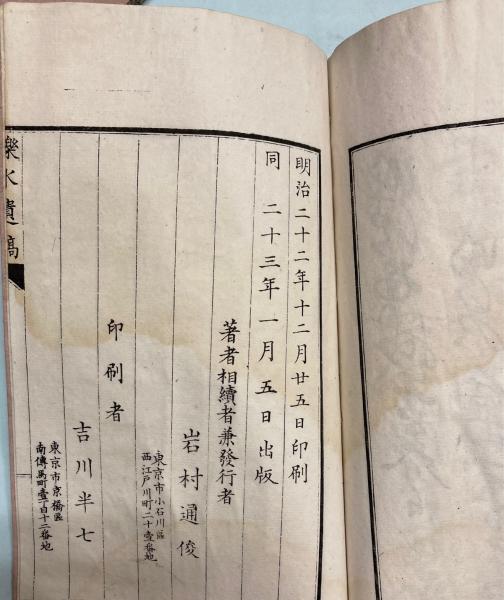 明治二十二年十二月廿五日印刷
同　二十三年一月五日出版
著者相續者兼發行者
岩村通俊
東京市小石川區
西江戸川町二十壹番地
印刷者
吉川半七
東京市京橋區
南傳馬町壹丁目十二番地
樂水遺稿